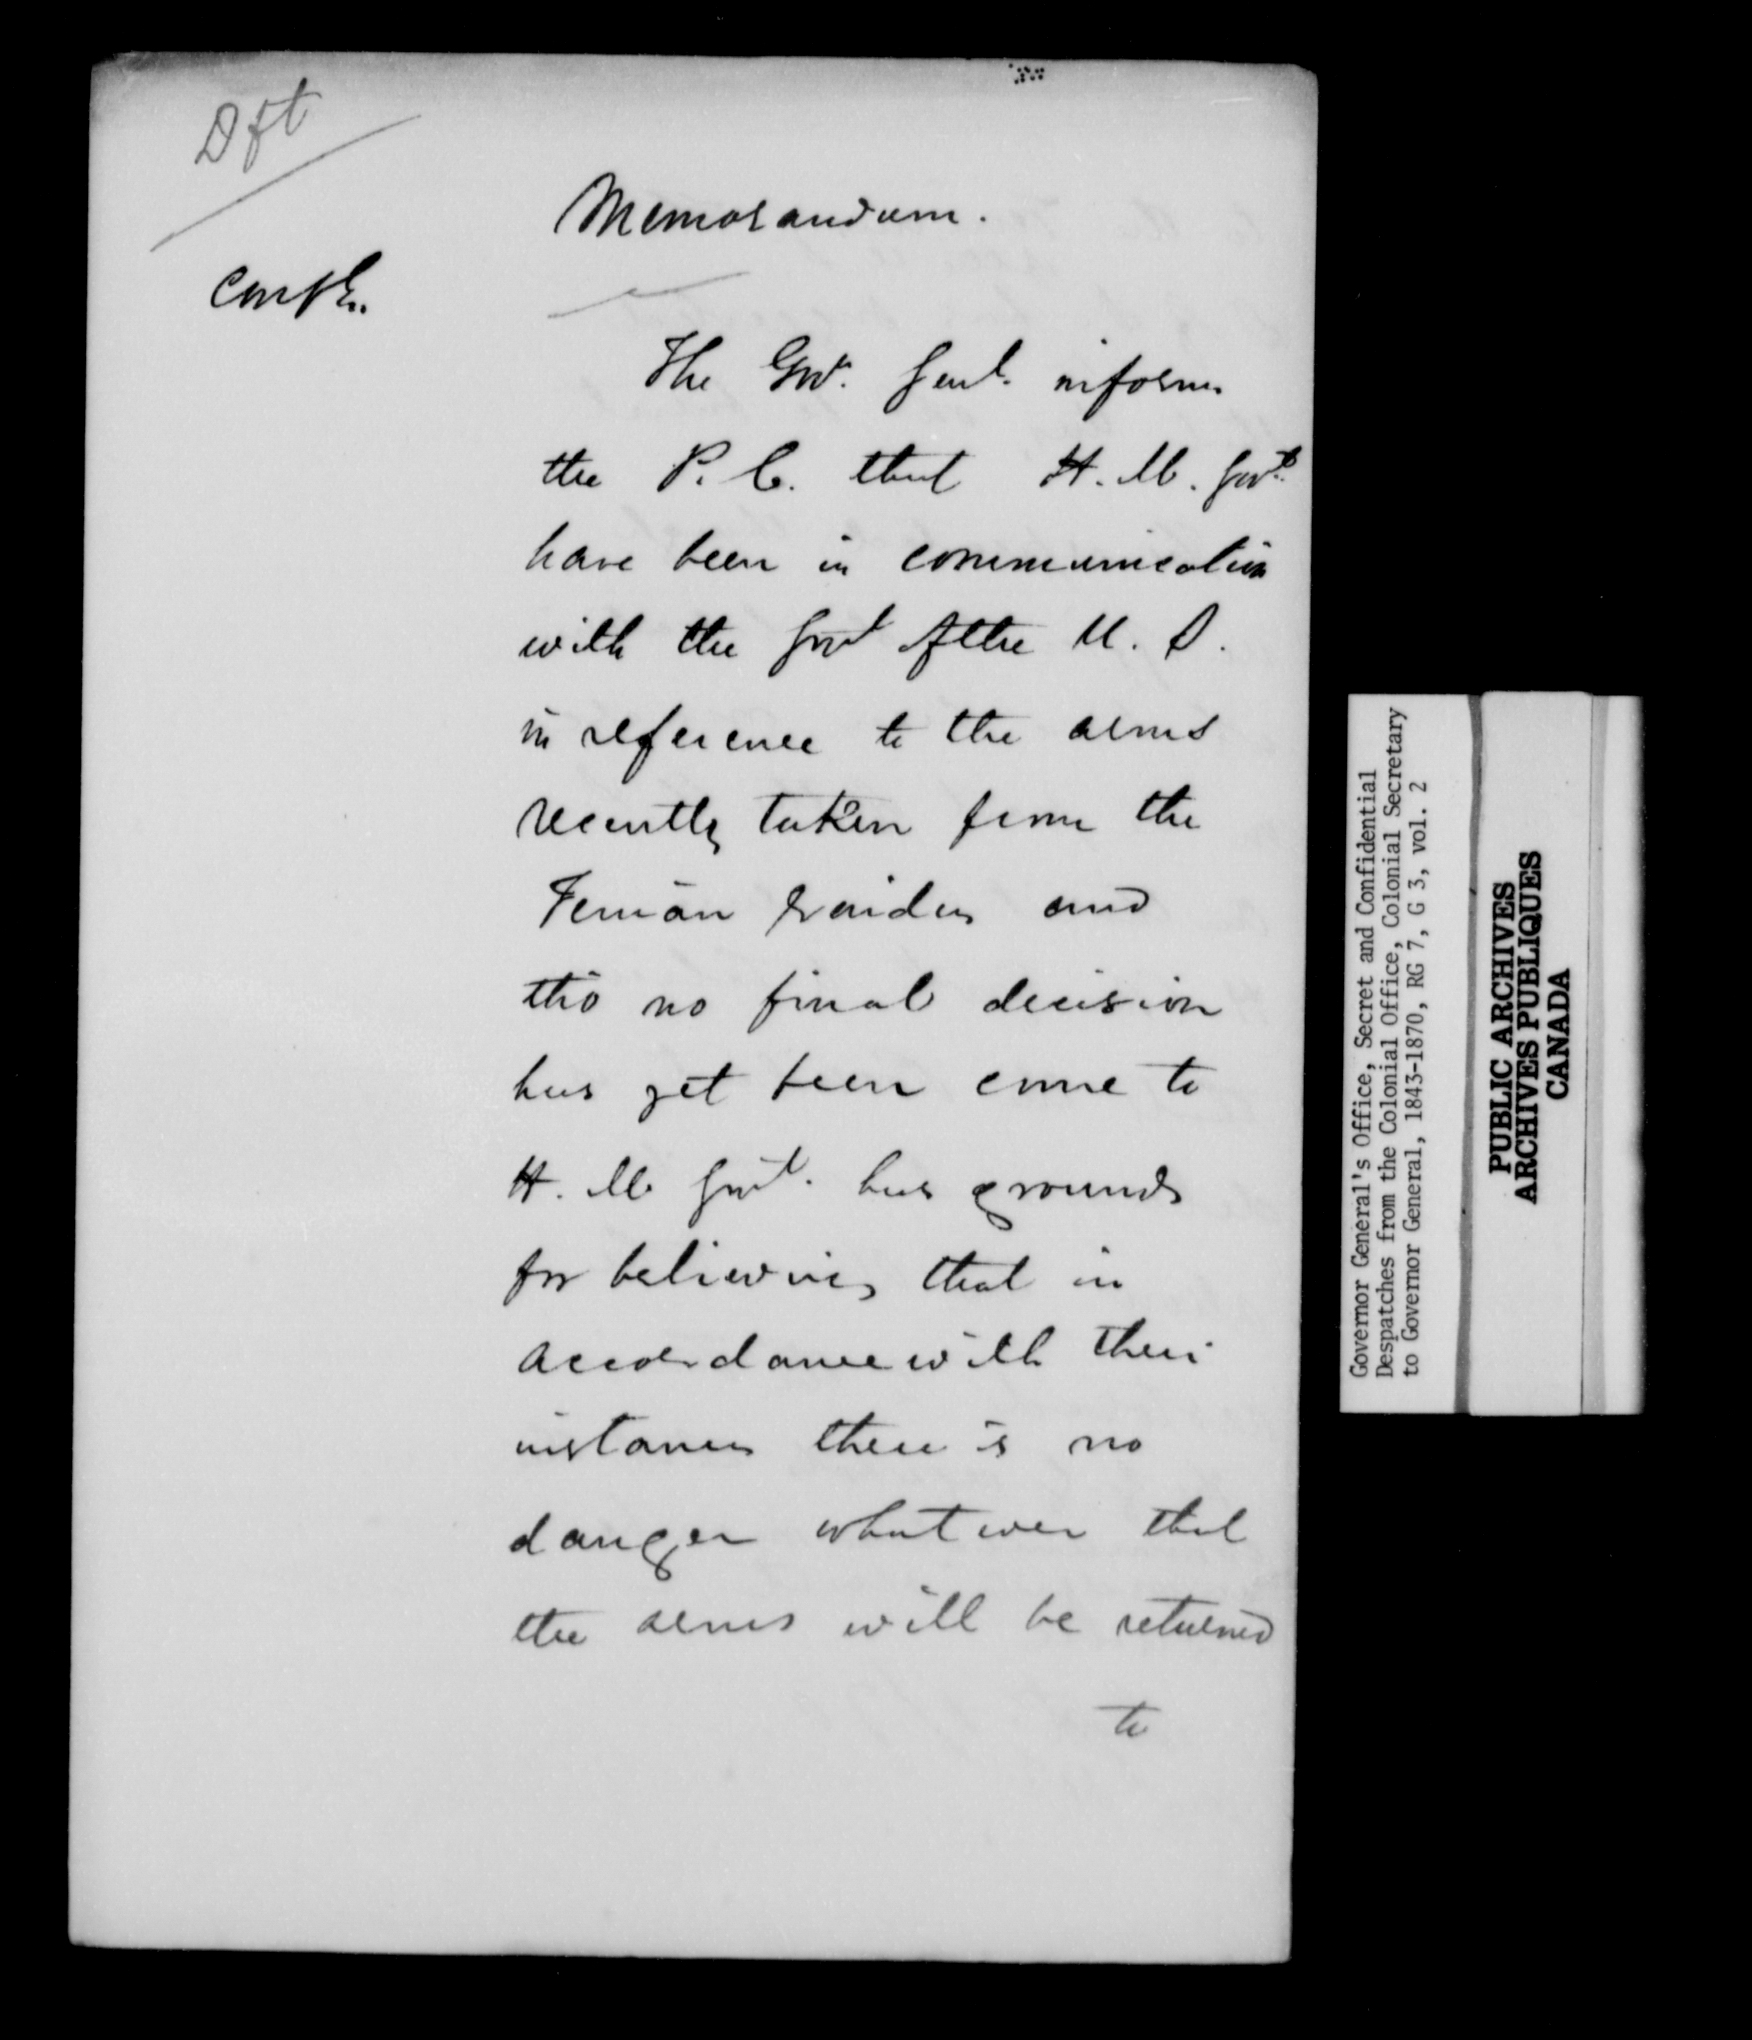 Dft
Memorandum.
Confl.
The Govr. Genl. informs
the P. C. that H. M. Govt.
have been in communication
with the Govt of the U. S.
in reference to the arms
recently taken from the
Fenian raiders and
tho no final decision
has yet been come to
H. M Govt. has grounds
for believing that in
accordance with their
instances there is no
danger whatever that
the arms will be returned
to
Governor General's Office, Secret and Confidential
Despatches from the Colonial Office, Colonial Secretary
to Governor General, 1843-1870, RG 7, G 3, vol. 2
PUBLIC ARCHIVES
ARCHIVES PUBLIQUES
CANADA